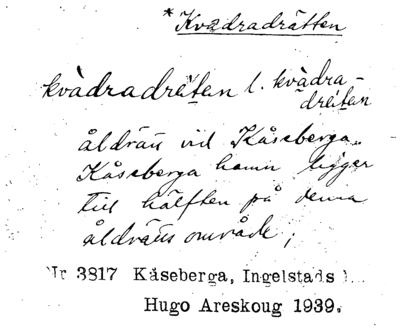 *Kvadradrätten
kvàdradréten l. kvàdra-
drèten
åldrätt vid Kåseberga.
Kåseberga hamn ligger
till hälften på denna
åldrätts område;
Nr 3817 Kåseberga, Ingelstads
Hugo Areskoug 1939.